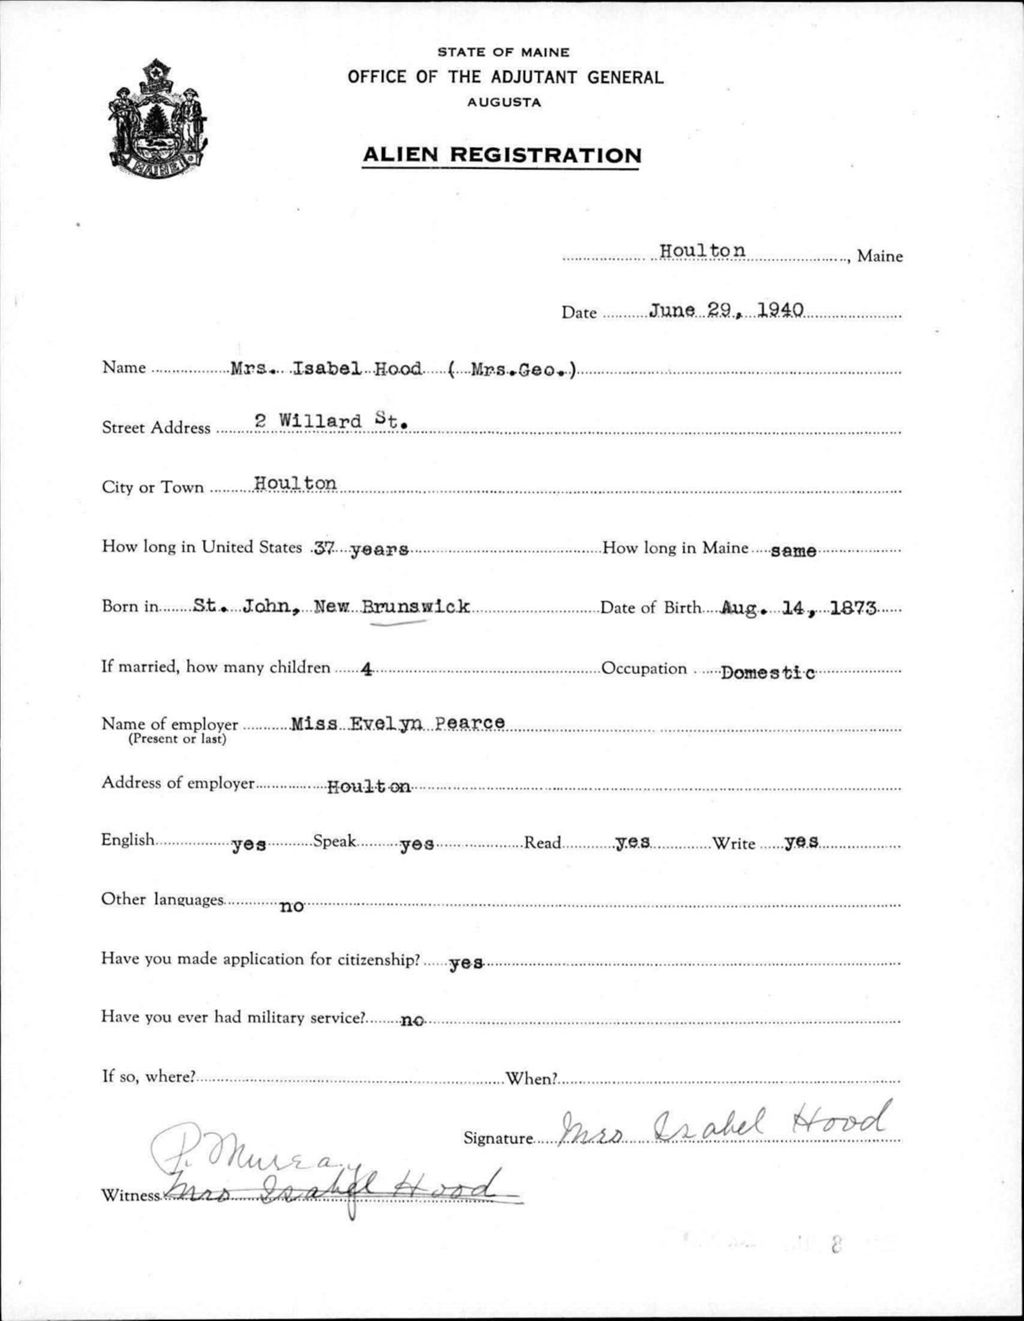 STATE OF MAINE
OFFICE OF THE ADJUTANT GENERAL
AUGUSTA
ALIEN REGISTRATION
MAINE
Houlton, Maine
Date June 29, 1940
Name Mrs. Isabel Hood ( Mrs.Geo.)
Street Address 2 Willard St.
City or Town Houlton
How long in United States 37 years How long in Maine same
Born in St. John, New Brunswick Date of Birth Aug. 14, 1873
If married, how many children 4 Occupation Domestic
Name of employer Miss Evelyn Pearce
(Present or last)
Address of employer Houlton
English yes Speak yes Read yes Write yes
Other languages no
Have you made application for citizenship? yes
Have you ever had military service? no
If so, where? When?
Signature Mrs Isabel Hood
P. Murray
Witness Mrs Isabel Hood